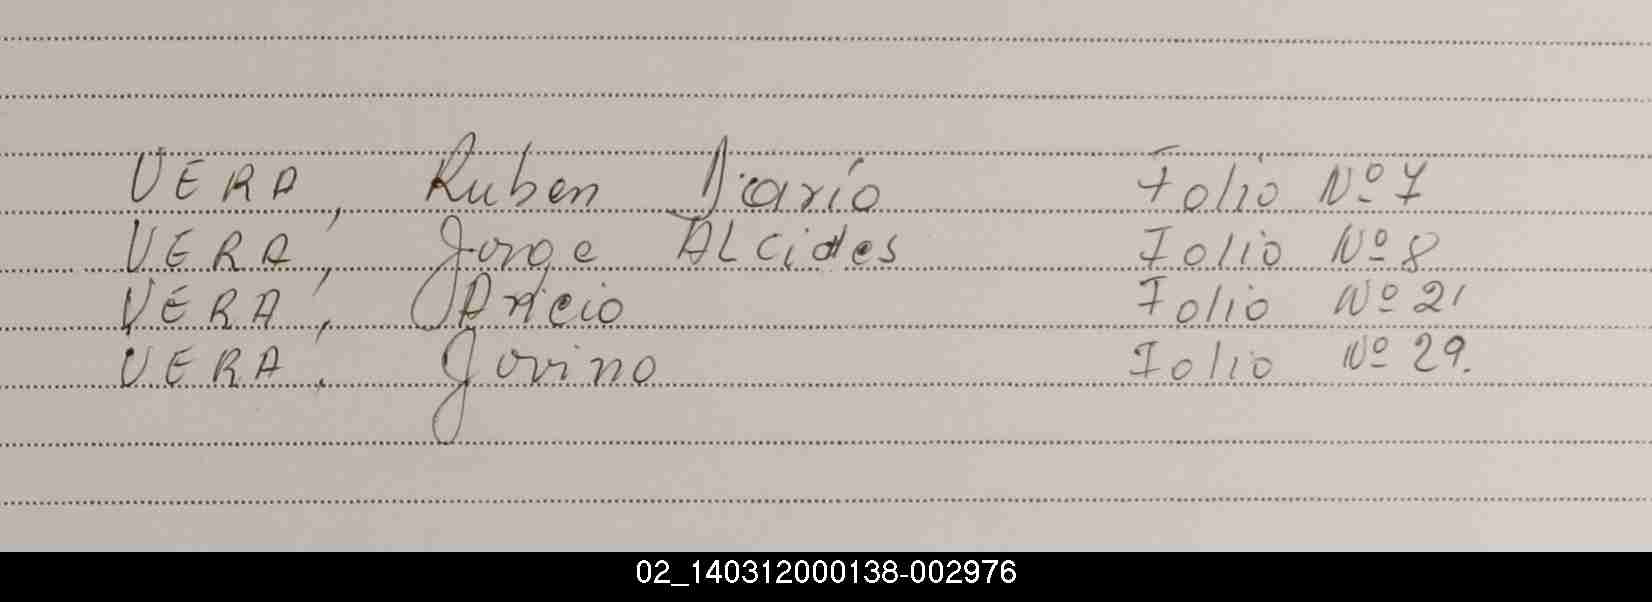 VERA, Ruben Darío Folio Nº 7
VERA, Jorge ALcides Folio Nº 8
VERA, Folio Nº 21
VERA, Jovino Folio Nº 29.
02_140312000138-002976